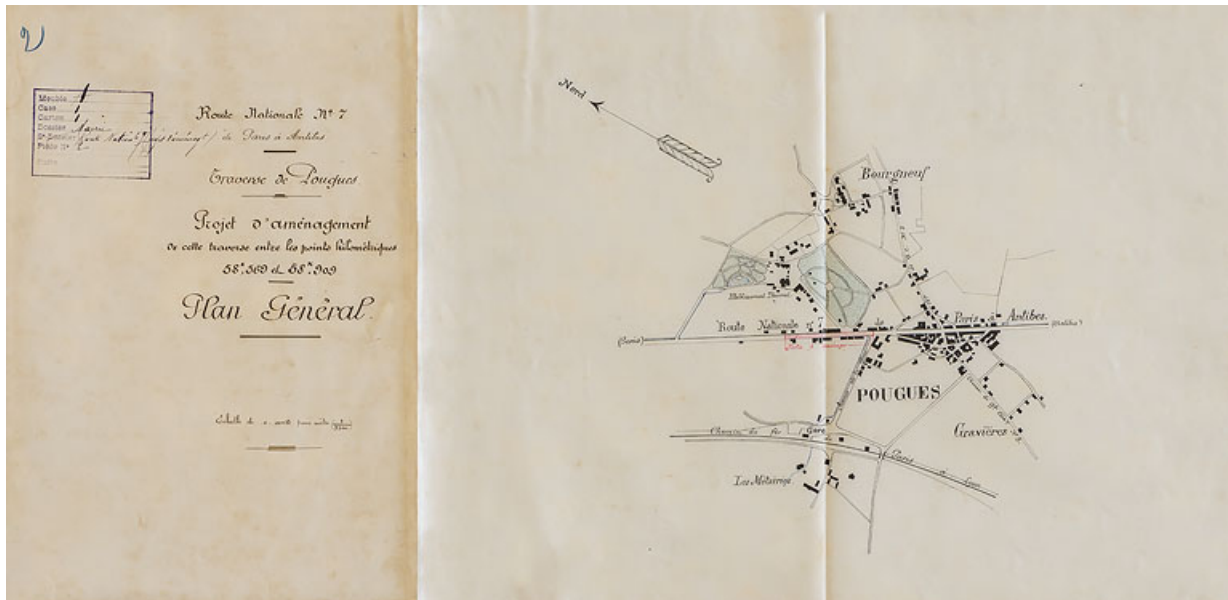 2
Meuble 1
Case 1
Carton 1
Dossier
Pièce No 2
Route Nationale No 7
de Paris à Antibes
Traverse de Pougues
Projet d'aménagement
de cette traverse entre les points kilométriques
58k,569 et 58k,909
Plan Général.
Echelle de
Nord
Bourgneuf
Etablissement Thermal
Route Nationale no 7 de Paris à Antibes.
(Paris)
(Antibes)
POUGUES
Gravières
Chemin de fer
Gare
de Paris à Lyon
Les Métairies